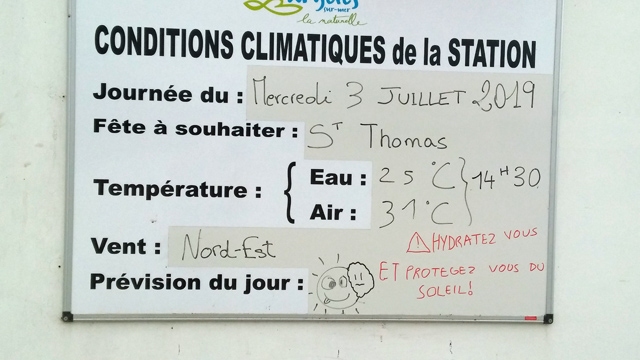 Argelès
sur-mer
la naturelle
CONDITIONS CLIMATIQUES de la STATION
Journée du : Mercredi 3 JUILLET 2019
Fête à souhaiter : ST Thomas
Température : { Eau : 25°C } 14H30
Air : 31°C
Vent : Nord-Est
⚠ HYDRATEZ VOUS
ET PROTEGEZ VOUS DU
SOLEIL!
Prévision du jour :